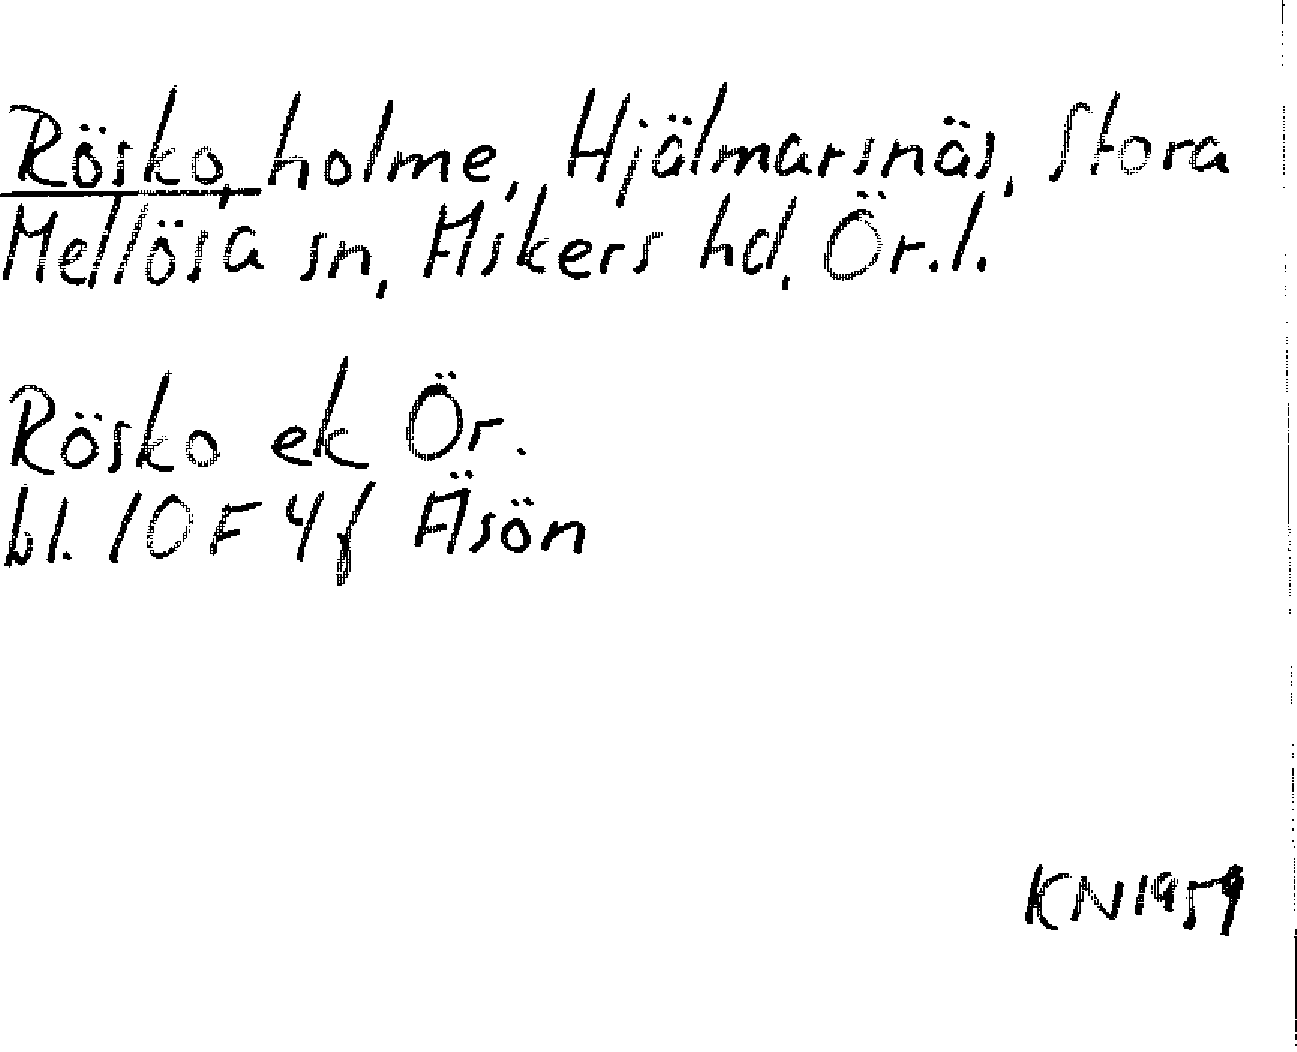 Rösko, holme, Hjälmarsnäs, Stora
Mellösa sn, Askers hd, Ör.l.
Rösko ek Ör.
bl. 10F4f Äsön
KN1959